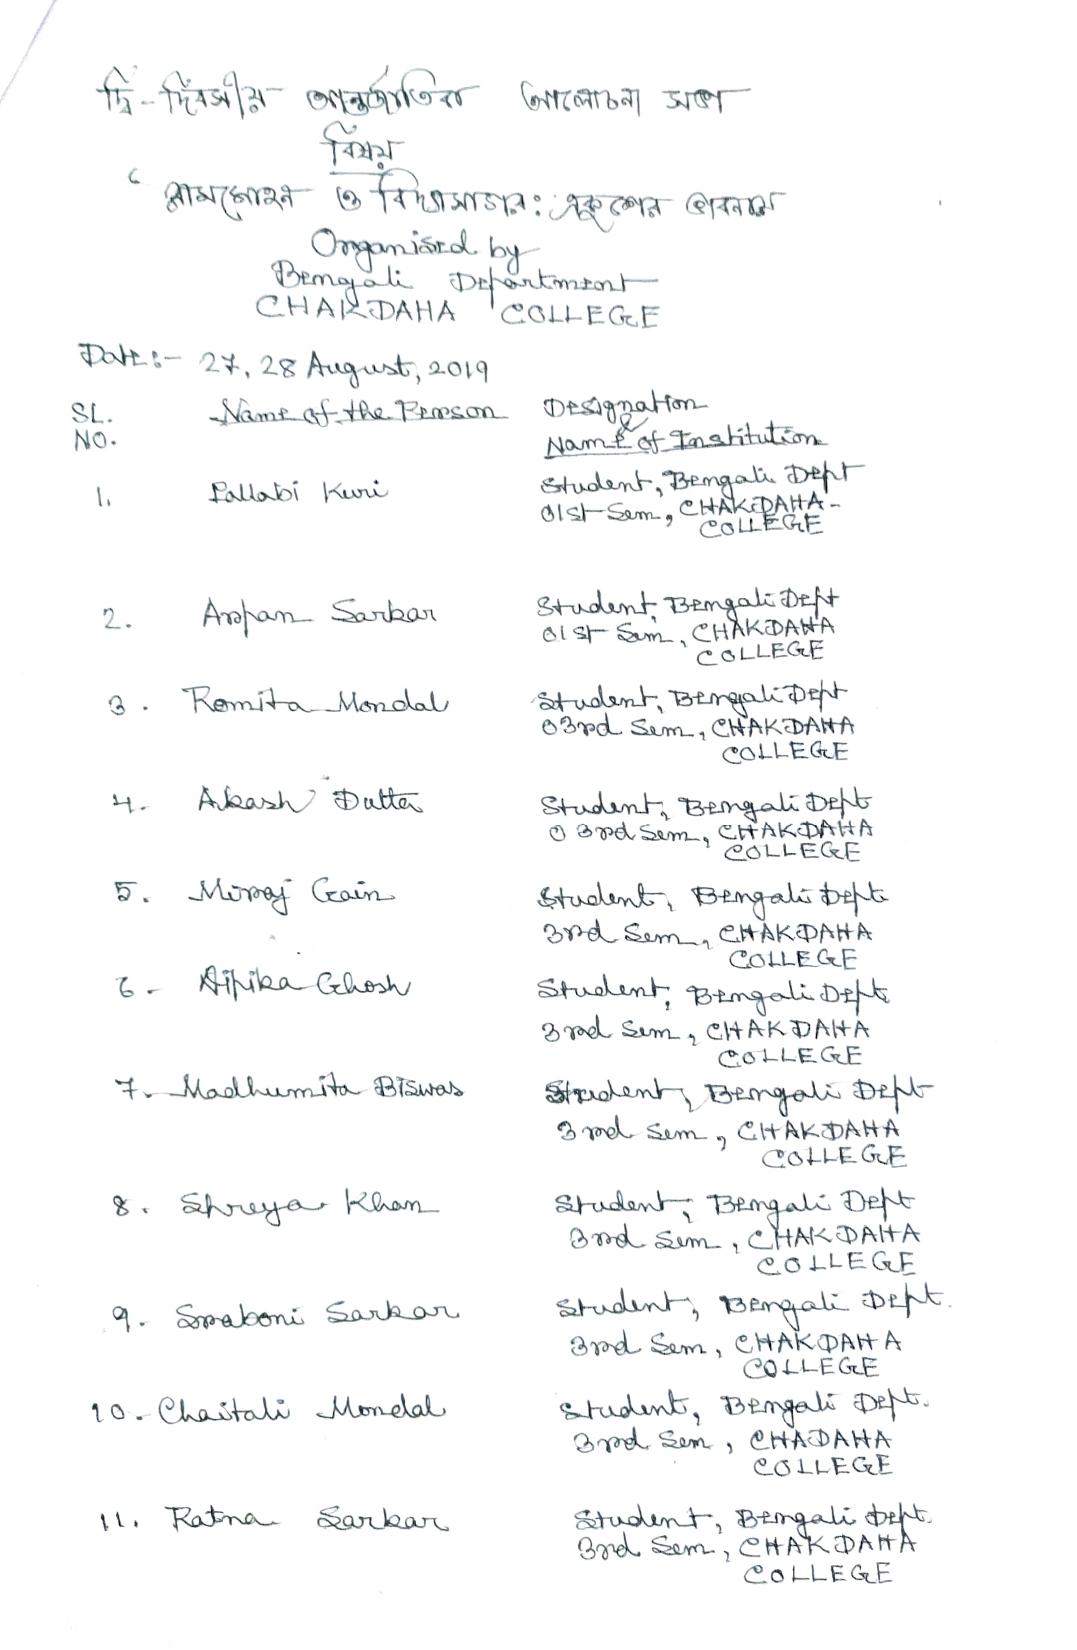 দ্বি-দিবসীয় আন্তর্জাতিক আলোচনা সভা
বিষয়
‘রামমোহন ও বিদ্যাসাগর: একুশের ভাবনায়
Organised by
Bengali Department
CHAKDAHA COLLEGE
Date:- 27, 28 August, 2019
SL. NO. Name of the Person Designation & Name of Institution
1. Pallabi Kuri Student, Bengali Dept
01st Sem, CHAKDAHA-
COLLEGE
2. Arpan Sarkar Student, Bengali Dept
01st Sem, CHAKDAHA
COLLEGE
3. Romita Mondal Student, Bengali Dept
03rd Sem, CHAKDAHA
COLLEGE
4. Akash Dutta Student, Bengali Dept
03rd Sem, CHAKDAHA
COLLEGE
5. Miraj Gain Student, Bengali Dept
3rd Sem, CHAKDAHA
COLLEGE
6. Dipika Ghosh Student, Bengali Dept
3rd Sem, CHAKDAHA
COLLEGE
7. Madhumita Biswas Student, Bengali Dept
3rd Sem, CHAKDAHA
COLLEGE
8. Shreya Khan Student, Bengali Dept
3rd Sem, CHAKDAHA
COLLEGE
9. Sraboni Sarkar Student, Bengali Dept.
3rd Sem, CHAKDAHA
COLLEGE
10. Chaitali Mondal Student, Bengali Dept.
3rd Sem, CHADAHA
COLLEGE
11. Ratna Sarkar Student, Bengali Dept.
3rd Sem, CHAKDAHA
COLLEGE